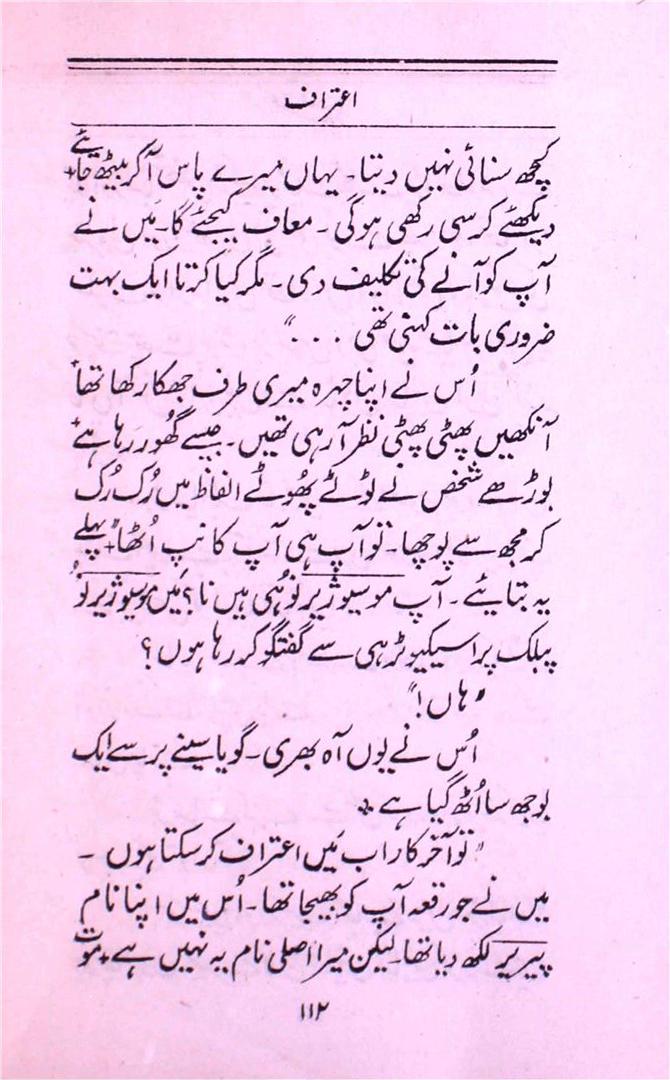 اعتراف
کچھ سنائی نہیں دیتا۔ یہاں میرے پاس آکر بیٹھ جائیے+
دیکھئے کرسی رکھی ہوگی۔ معاف کیجئے گا۔ مَیں نے
آپ کو آنے کی تکلیف دی۔ مگر کیا کرتا ایک بہت
ضروری بات کہنی تھی ۔ ۔ ۔"
اُس نے اپنا چہرہ میری طرف جھکا رکھا تھا+
آنکھیں پھٹی پھٹی نظر آرہی تھیں۔ جیسے گھُور رہا ہے+
بوڑھے شخص نے ٹوٹے پھُوٹے الفاظ میں رُک رُک
کر مجھ سے پوچھا۔ تو آپ ہی آپ کانپ اُٹھا+ "پہلے
یہ بتائیے۔ آپ موسیو ژیر نُو ہی ہیں نا؟ مَیں موسیو ژیر نُو
پبلک پراسیکیوٹر ہی سے گفتگو کر رہا ہوں؟
"ہاں!"
اُس نے یوں آہ بھری۔ گویا سینے پر سے ایک
بوجھ سا اُٹھ گیا ہے+
"تو آخر کار اب مَیں اعتراف کرسکتا ہوں ۔
میں نے جو رقعہ آپ کو بھیجا تھا۔ اُس میں اپنا نام
پیریر لکھ دیا تھا۔ لیکن میرا اصلی نام یہ نہیں ہے+ موت
۱۱۲